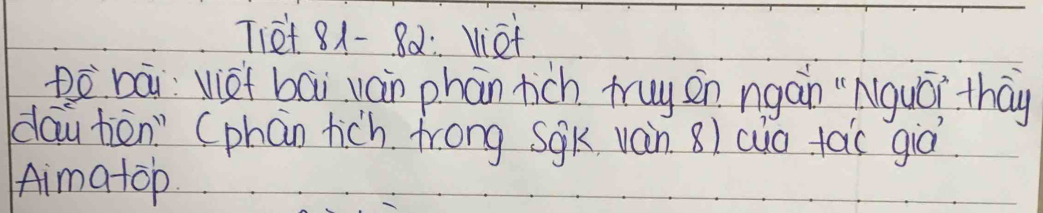 Tiết 81 - 82: Viết
Đề bài: Viết bài văn phân tích truyện ngắn "Người thầy
đầu tiên" (phân tích trong SGK văn 8) của tác giả
Aimatốp.